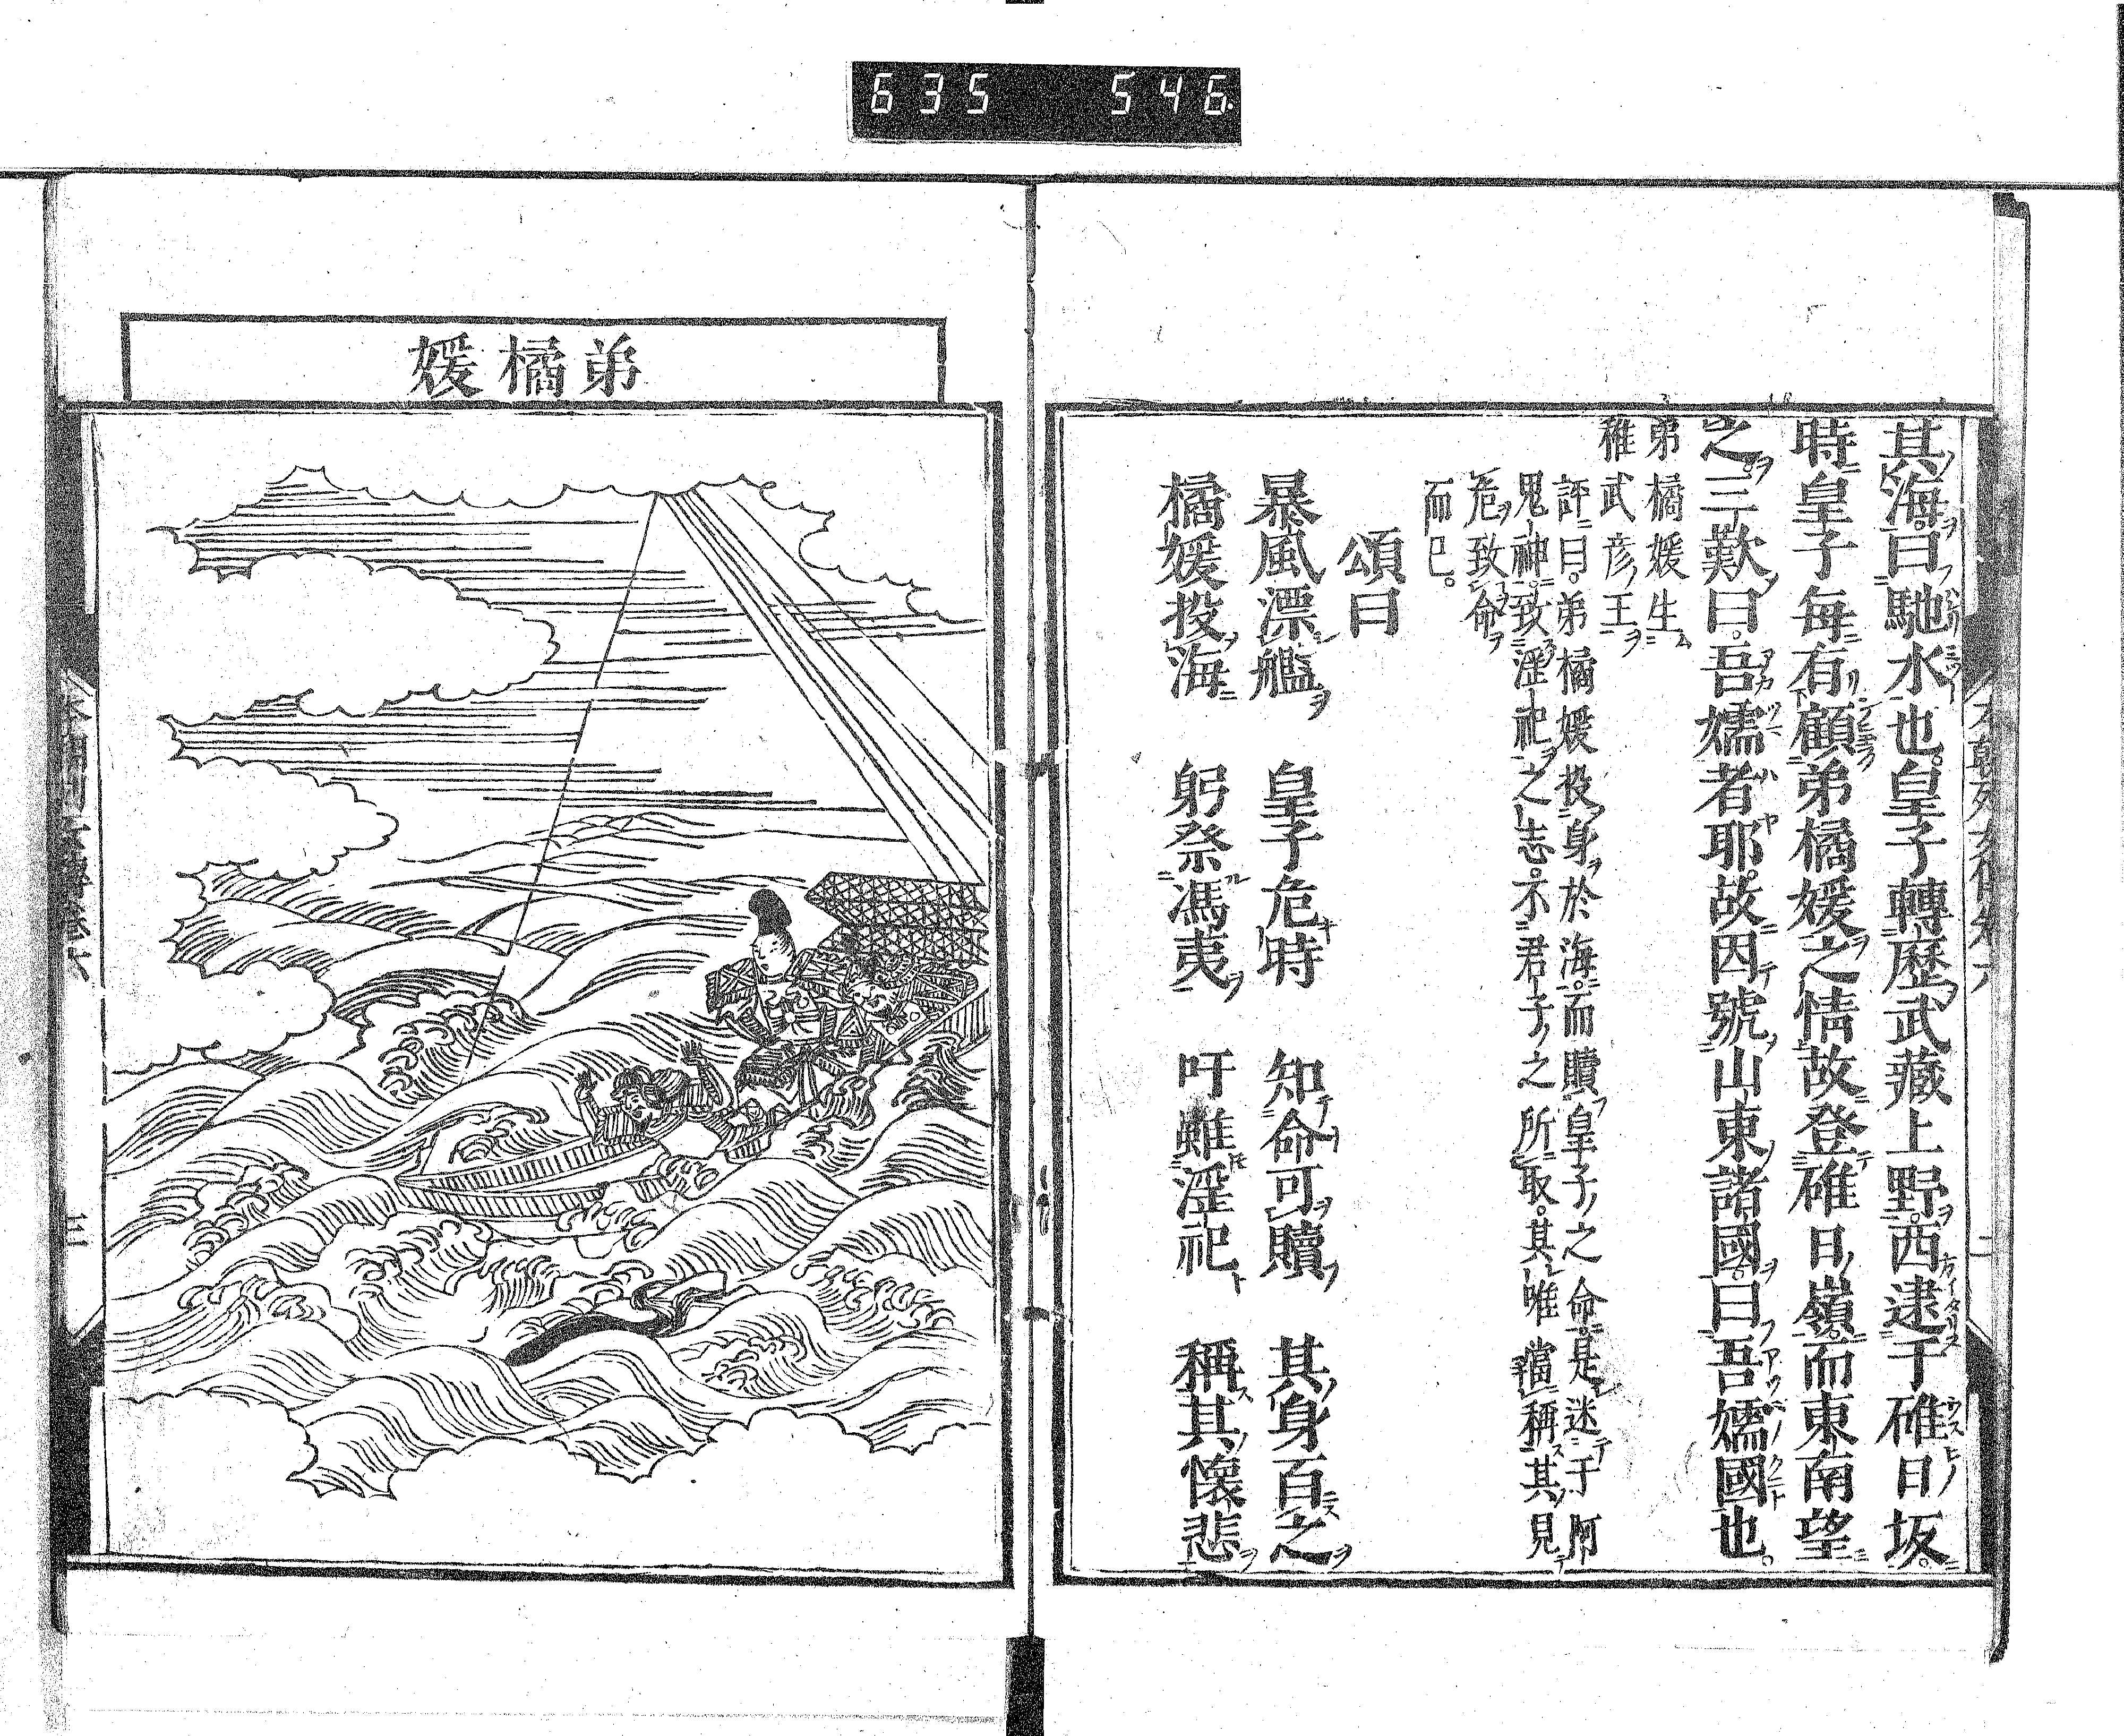 635 546
其海曰馳水也。皇子轉歷武藏上野。西逮于碓日坂。
時皇子毎有顧弟橘媛之情故登碓日嶺。而東南望
之。三歎曰。吾嬬者耶。故因號山東諸國。曰吾嬬國也。
弟橘媛生
稚武彦王
評曰。弟橘媛投身於海。而贖皇子之命。是迷于阿
鬼神。致淫祀之志。不君子之所取。其唯當稱其見
危致命
而已。
頌曰
暴風漂艦 皇子危時 知命可贖 其身百之
橘媛投海 躬祭馮夷 吁雖淫祀 稱其懷悲
弟橘媛
三